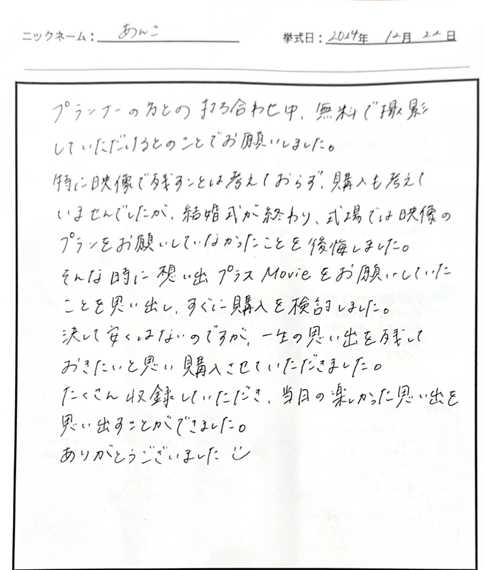 ニックネーム： あんこ 挙式日：2024年 12月 22日
プランナーの方との打ち合わせ中、無料で撮影
していただけるとのことでお願いしました。
特に映像で残すことは考えておらず、購入も考えて
いませんでしたが、結婚式が終わり、式場では映像の
プランをお願いしていなかったことを後悔しました。
そんな時に想い出プラスMovieをお願いしていた
ことを思い出し、すぐに購入を検討しました。
決して安くはないのですが、一生の思い出を残して
おきたいと思い購入させていただきました。
たくさん収録していただき、当日の楽しかった思い出を
思い出すことができました。
ありがとうございました